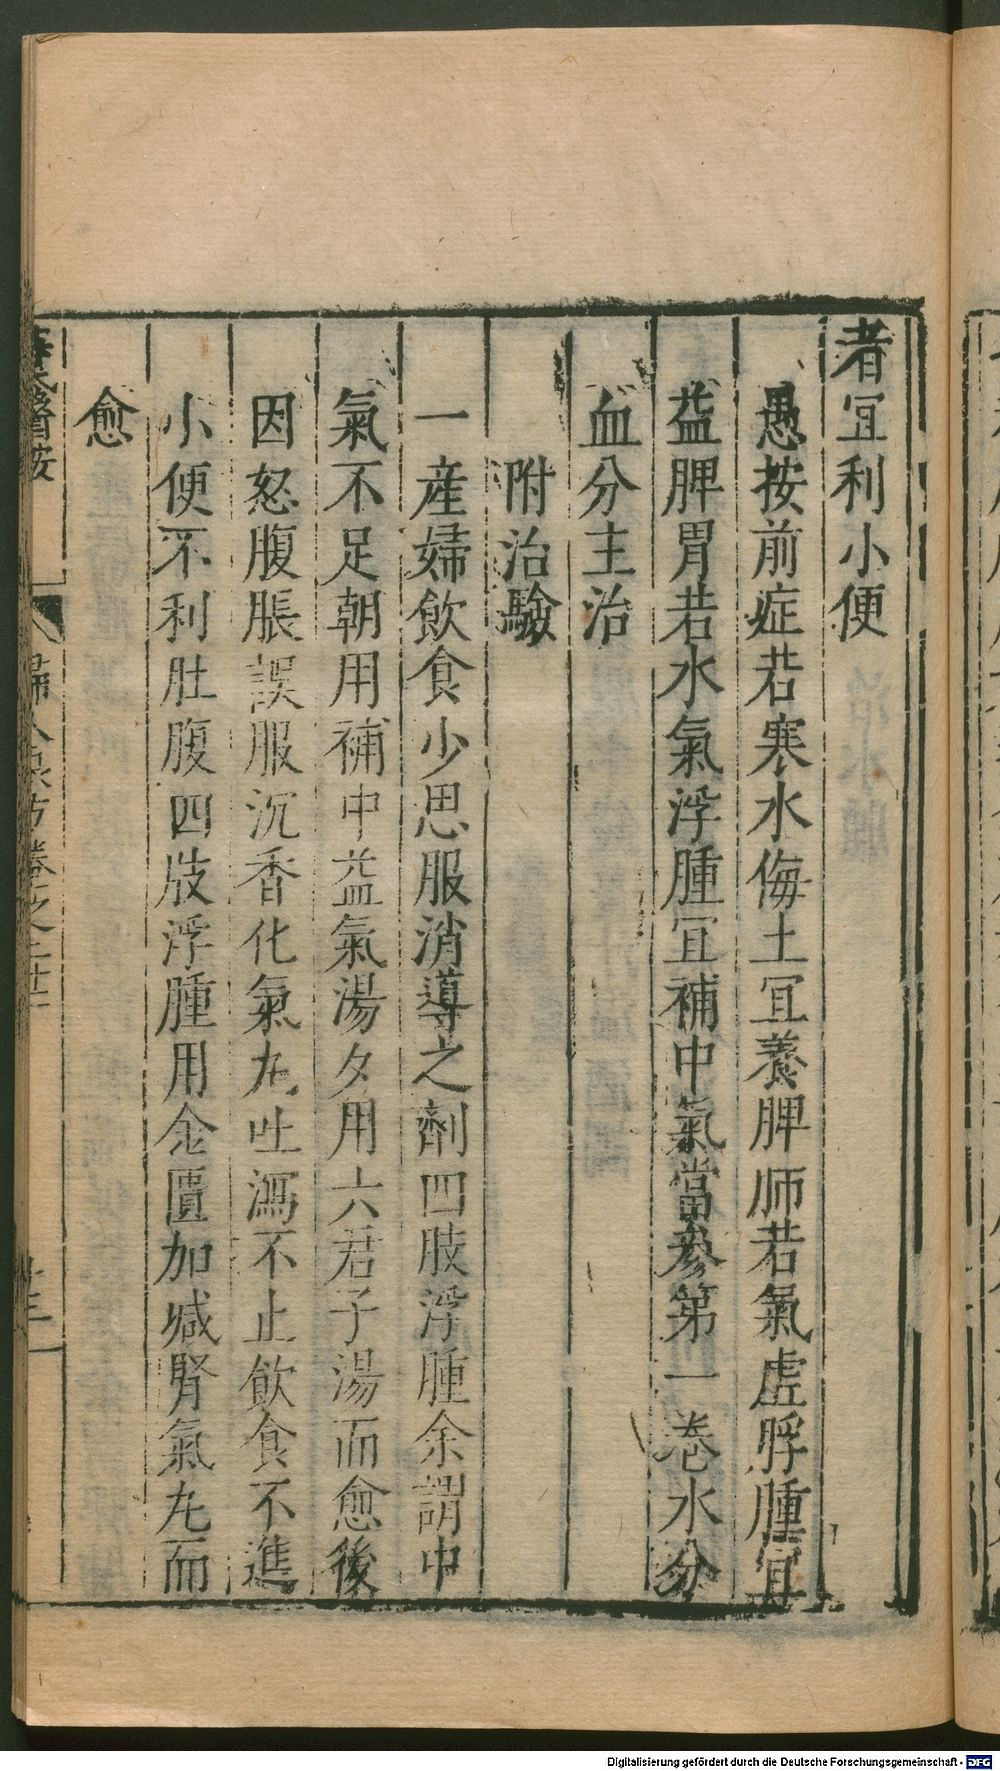 者宜利小便
愚按前症若寒水侮土宜養脾肺若氣虛脬腫宜
益脾胃若水氣浮腫宜補中氣當參第一卷水分
血分主治
附治驗
一產婦飲食少思服消導之劑四肢浮腫余謂中
氣不足朝用補中益氣湯夕用六君子湯而愈後
因怒腹脹誤服沉香化氣丸吐瀉不止飲食不進
小便不利肚腹四肢浮腫用金匱加減腎氣丸而
愈
醫按
婦人良方卷之二十
Digitalisierung gefördert durch die Deutsche Forschungsgemeinschaft - DFG